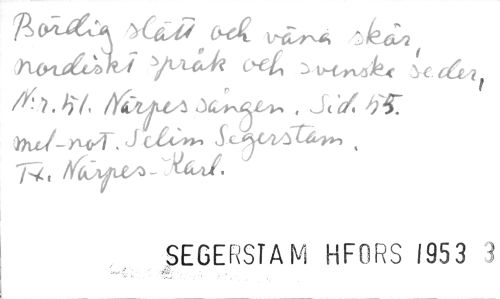 Bördig slätt och väna skär,
nordiskt språk och svenska seder,
N:r. 51. Närpes sången. Sid. 55.
mel-not. Selim Segerstam.
Tx. Närpes-Karl.
SEGERSTAM HFORS 1953 3